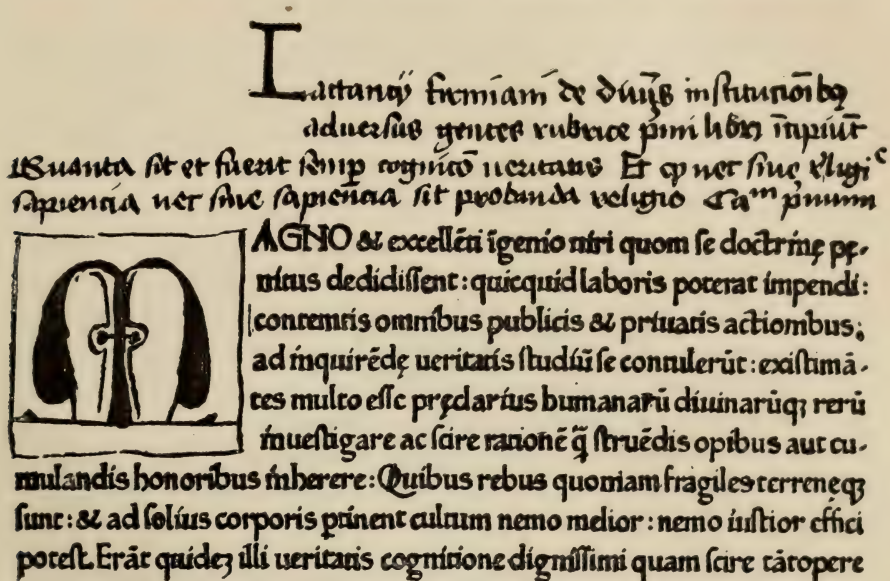 Lactantij firmiani de diuīs institutiōibꝫ
aduersus gentes rubrice p̄mi libri īcipiūt
Quanta sit et fuerit semp̄ cognitō ueritatis Et ꝙ nec sine religiᶜ
sapiencia nec sine sapiēcia sit probanda religio Caᵐ p̄mum
MAGNO & excellēti īgenio uiri quom se doctrinę pę-
nitus dedidissent: quicquid laboris poterat impendi:
contemtis omnibus publicis & priuatis actionibus;
ad inquirēdę ueritatis studiū se contulerūt: existimā-
tes multo esse pręclarius humanarū diuinarūqꝫ rerū
inuestigare ac scire rationē q̄ struēdis opibus aut cu-
mulandis honoribus inherere: Quibus rebus quoniam fragiles terreneqꝫ
sunt: & ad solius corporis ꝑtinent cultum nemo melior: nemo iustior effici
potest. Erāt quideꝫ illi ueritatis cognitione dignissimi quam scire tātopere